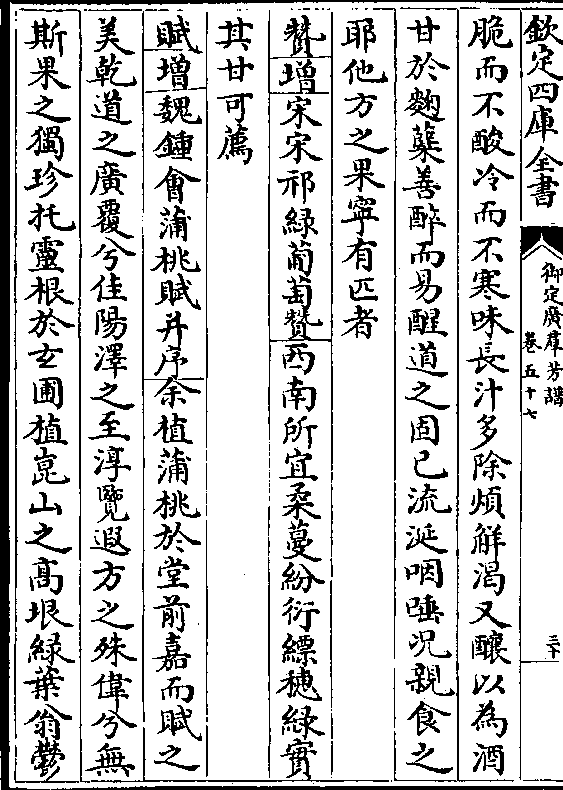 欽定四庫全書
御定廣羣芳譜
卷五十七
三十
脆而不酸冷而不寒味長汁多除煩解渴又釀以為酒
甘於麴糵善醉而易醒道之固已流涎咽唾况親食之
耶他方之果寧有匹者
贊增宋宋祁綠葡萄贊西南所宜柔蔓紛衍縹穗綠實
其甘可薦
賦增魏鍾會蒲桃賦并序余植蒲桃於堂前嘉而賦之
美乾道之廣覆兮佳陽澤之至淳覽遐方之殊偉兮無
斯果之獨珍托靈根於玄圃植崑山之高垠綠葉蓊鬱